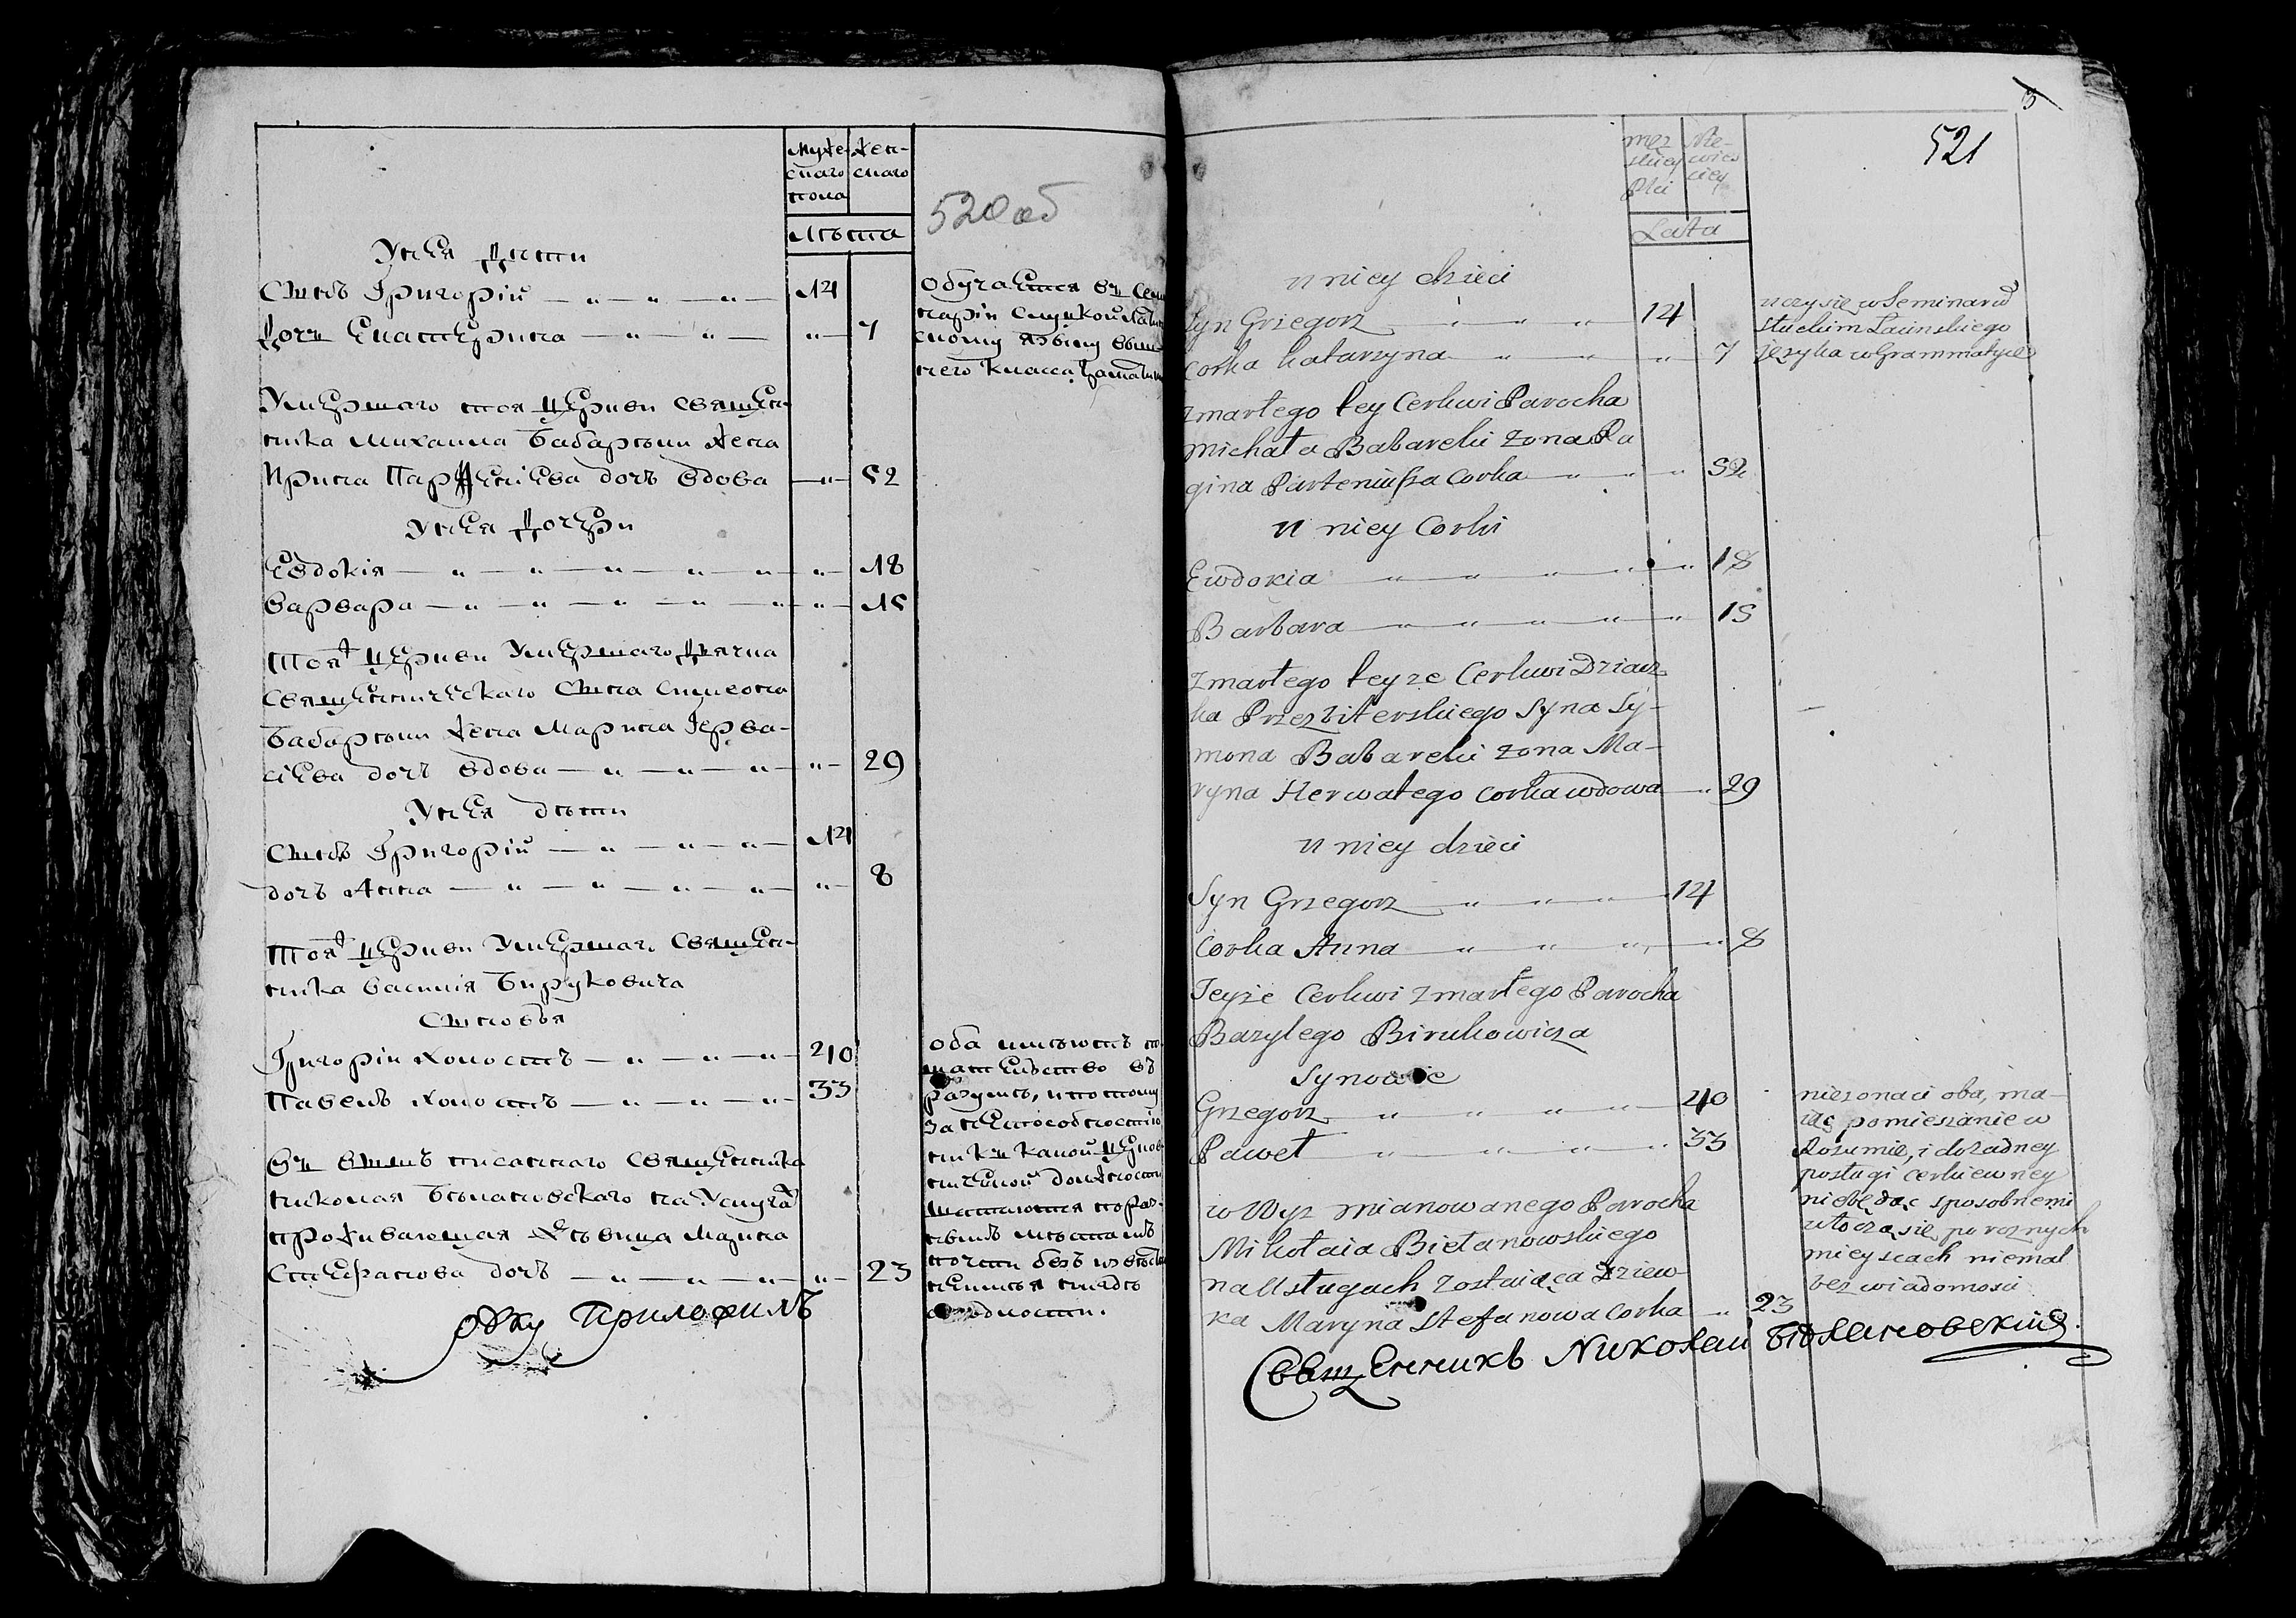 Муже-
скаго
пола
Жен-
скаго
Лѣта
520 об
Унея Дѣти
Сынъ Григорій — „ — „ — „ — 14
Дочь Екатерина — „ — „ — „ — 7
Обучается въ Сем
нарiи Слуцкой Латин
скому языку
него класса
Умершаго тоя Церкви Священ-
ника Михаила Бабарѣки Жена
Ирина Парѳенiева дочъ вдова — „ — 52
Унея Дочери
Евдокія — „ — „ — „ — „ — „ — „ — 18
Варвара — „ — „ — „ — „ — „ — „ — 15
Тояж Церкви Умершаго Дьячка
Священическаго Сына Симеона
Бабарѣки Жена Марина Герва-
сіева дочъ вдова — „ — „ — „ — „ — 29
Унея дѣти
Сынъ Григорій — „ — „ — „ — 14
дочъ Анна — „ — „ — „ — „ — „ — 8
Тояж Церкви Умершаго Священ-
ника Василія Бируковича
Сыновья
Григорій Холостъ — „ — „ — „ — 40
Павелъ Холостъ — „ — „ — „ — 33
оба имѣютъ по
мешательство въ
разумѣ, и потому
за неспособностію
ни къ какой Церков
ничной должности
шатаются по раз-
нымъ мѣстамъ
почти безъ извѣст
Въ вышъ писаннаго Священника
Николая Бѣлановскаго на Услугах
проживающая Дѣвица Марина
Стефанова дочъ — „ — „ — „ — „ — 23
Руку Приложилъ
521
męz
skiey
Płci
Że-
wies
kiey
Lata
u niey dzieci
Syn Grzegorz — „ — „ — „ — 14
Corka Katarzyna — „ — „ — „ — 7
uczy się w Seminarij
słuckim Łacinskiego
języka w Grammatyce
zmarłego tey Cerkwi Parocha
Michała Babareki zona Ra
gina Parteniusza Corka — „ — „ — 52
u niey Corki
Ewdokia — „ — „ — „ — „ — „ 18
Barbara — „ — „ — „ — „ — „ — 15
zmarłego teyze Cerkwi Dziacz
ka Prezbiterskiego Syna Sy-
mona Babareki zona Ma-
ryna Herwatego corka wdowa — „ 29
u niey dzieci
Syn Grzegorz — „ — „ — „ — 14
Corka Anna — „ — „ — „ — „ 8
Teyże Cerkwi zmarłego Parocha
Bazylego Birukowicza
Synowie
Grzegorz — „ — „ — „ — „ — 40
Paweł — „ — „ — „ — „ 33
niezonaci oba, ma-
iąc pomieszanie w
Rozumie, i dozadney
posługi cerkiewney
niebędąc sposobnemi
włoczą się po roznych
mieyscach niemal
bez wiadomosci
w Wyz mianowanego Parocha
Mikołaia Biełanowskiego
na Usługach zostaiąca Dziew-
ka Maryna Stefanowa corka — „ 23
Священникъ Николай Бѣлановскій